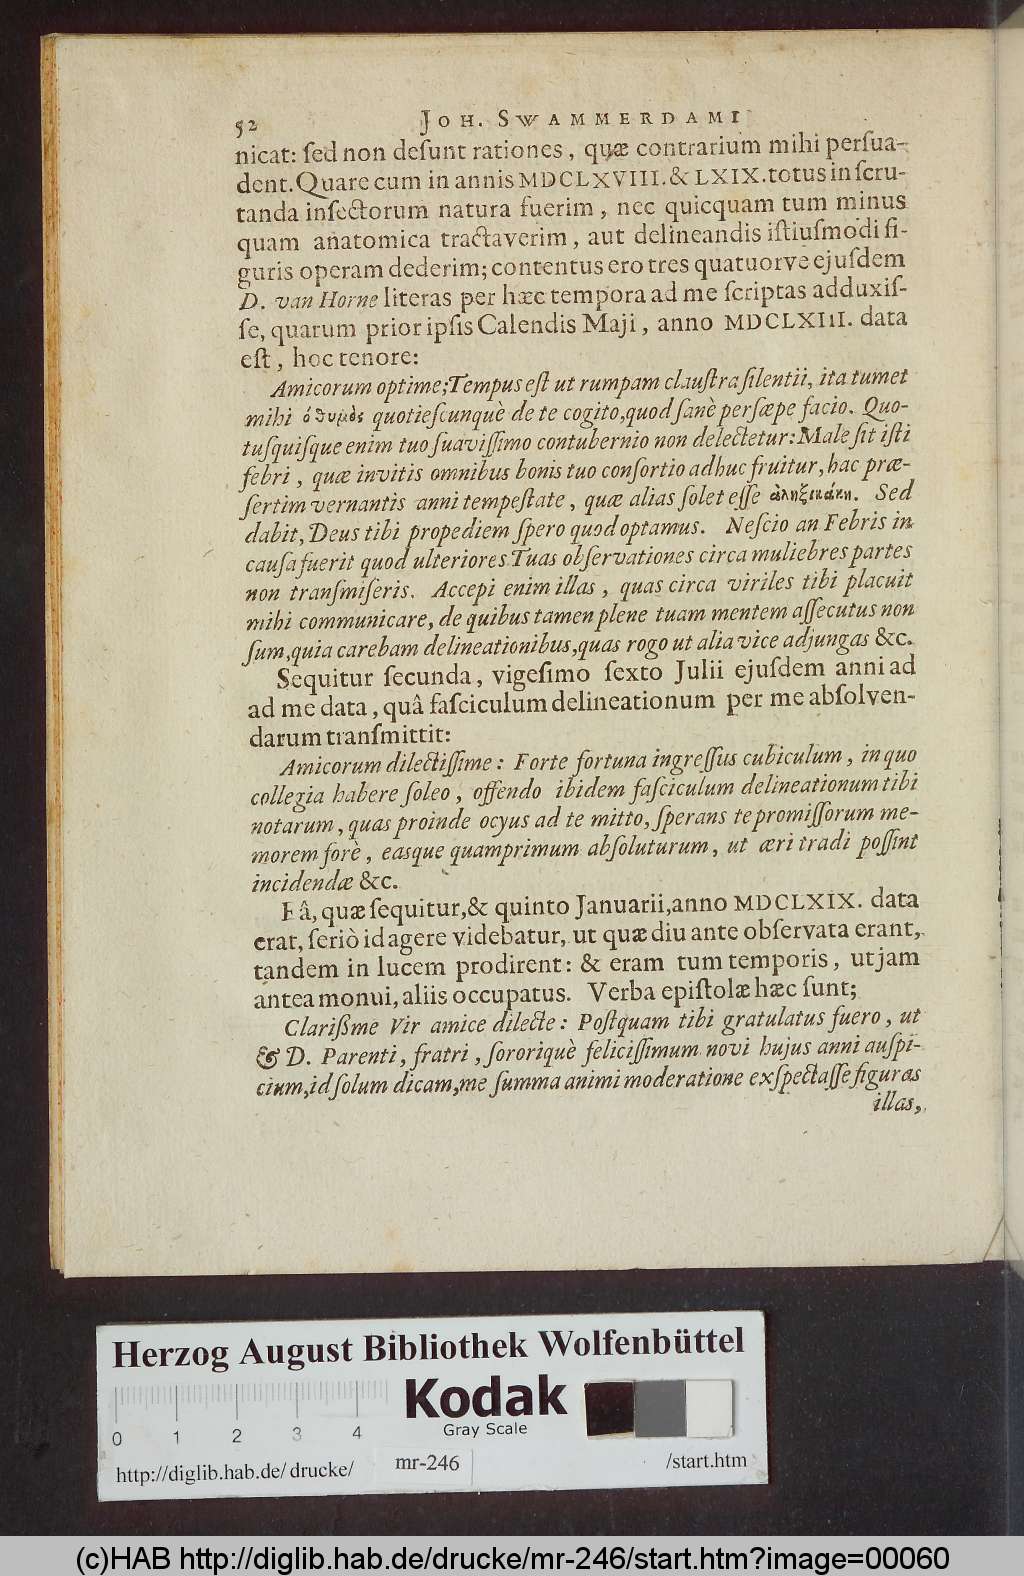 52 JOH. SWAMMERDAMI
nicat: ſed non deſunt rationes, quæ contrarium mihi perſua-
dent. Quare cum in annis MDCLXVIII. & LXIX. totus in ſcru-
tanda inſectorum natura fuerim, nec quicquam tum minus
quam anatomica tractaverim, aut delineandis iſtiuſmodi fi-
guris operam dederim; contentus ero tres quatuorve ejuſdem
D. van Horne literas per hæc tempora ad me ſcriptas adduxiſ-
ſe, quarum prior ipſis Calendis Maji, anno MDCLXIII. data
eſt, hoc tenore:
Amicorum optime; Tempus eſt ut rumpam clauſtra ſilentii, ita tumet
mihi ὁ θυμὸς quotieſcunquè de te cogito, quod ſanè perſæpe facio. Quo-
tuſquiſque enim tuo ſuaviſſimo contubernio non delectetur: Male ſit iſti
febri, quæ invitis omnibus bonis tuo conſortio adhuc fruitur, hac præ-
ſertim vernantis anni tempeſtate, quæ alias ſolet eſſe ἀληξικάκη. Sed
dabit, Deus tibi propediem ſpero quod optamus. Neſcio an Febris in
cauſa fuerit quod ulteriores Tuas obſervationes circa muliebres partes
non tranſmiſeris. Accepi enim illas, quas circa viriles tibi placuit
mihi communicare, de quibus tamen plene tuam mentem aſſecutus non
ſum, quia carebam delineationibus, quas rogo ut alia vice adjungas &c.
Sequitur ſecunda, vigeſimo ſexto Julii ejuſdem anni ad
ad me data, quâ faſciculum delineationum per me abſolven-
darum tranſmittit:
Amicorum dilectiſſime: Forte fortuna ingreſſus cubiculum, in quo
collegia habere ſoleo, offendo ibidem faſciculum delineationum tibi
notarum, quas proinde ocyus ad te mitto, ſperans te promiſſorum me-
morem forè, easque quamprimum abſoluturum, ut æri tradi poſſint
incidendæ &c.
Eâ, quæ ſequitur, & quinto Januarii, anno MDCLXIX. data
erat, ſeriò id agere videbatur, ut quæ diu ante obſervata erant,
tandem in lucem prodirent: & eram tum temporis, ut jam
antea monui, aliis occupatus. Verba epiſtolæ hæc ſunt;
Clarißme Vir amice dilecte: Poſtquam tibi gratulatus fuero, ut
& D. Parenti, fratri, ſororiquè feliciſſimum novi hujus anni auſpi-
cium, id ſolum dicam, me ſumma animi moderatione exſpectaſſe figuras
illas,
Herzog August Bibliothek Wolfenbüttel
Kodak
Gray Scale
0 1 2 3 4
http://diglib.hab.de/drucke/ mr-246 /start.htm
(c)HAB http://diglib.hab.de/drucke/mr-246/start.htm?image=00060